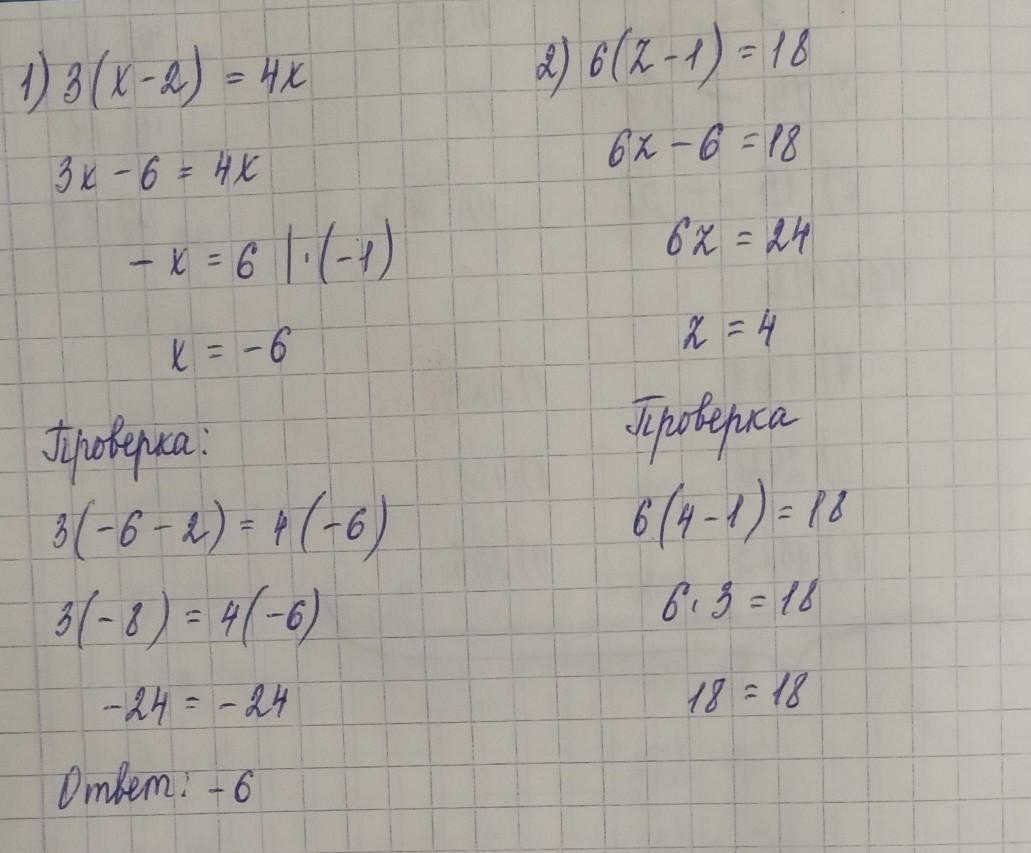 1) 3(x-2) = 4x
3x - 6 = 4x
- x = 6 |·(-1)
x = -6
Проверка:
3(-6-2) = 4(-6)
3(-8) = 4(-6)
-24 = -24
Ответ: -6
2) 6(z-1) = 18
6z - 6 = 18
6z = 24
z = 4
Проверка
6(4-1) = 18
6·3 = 18
18 = 18